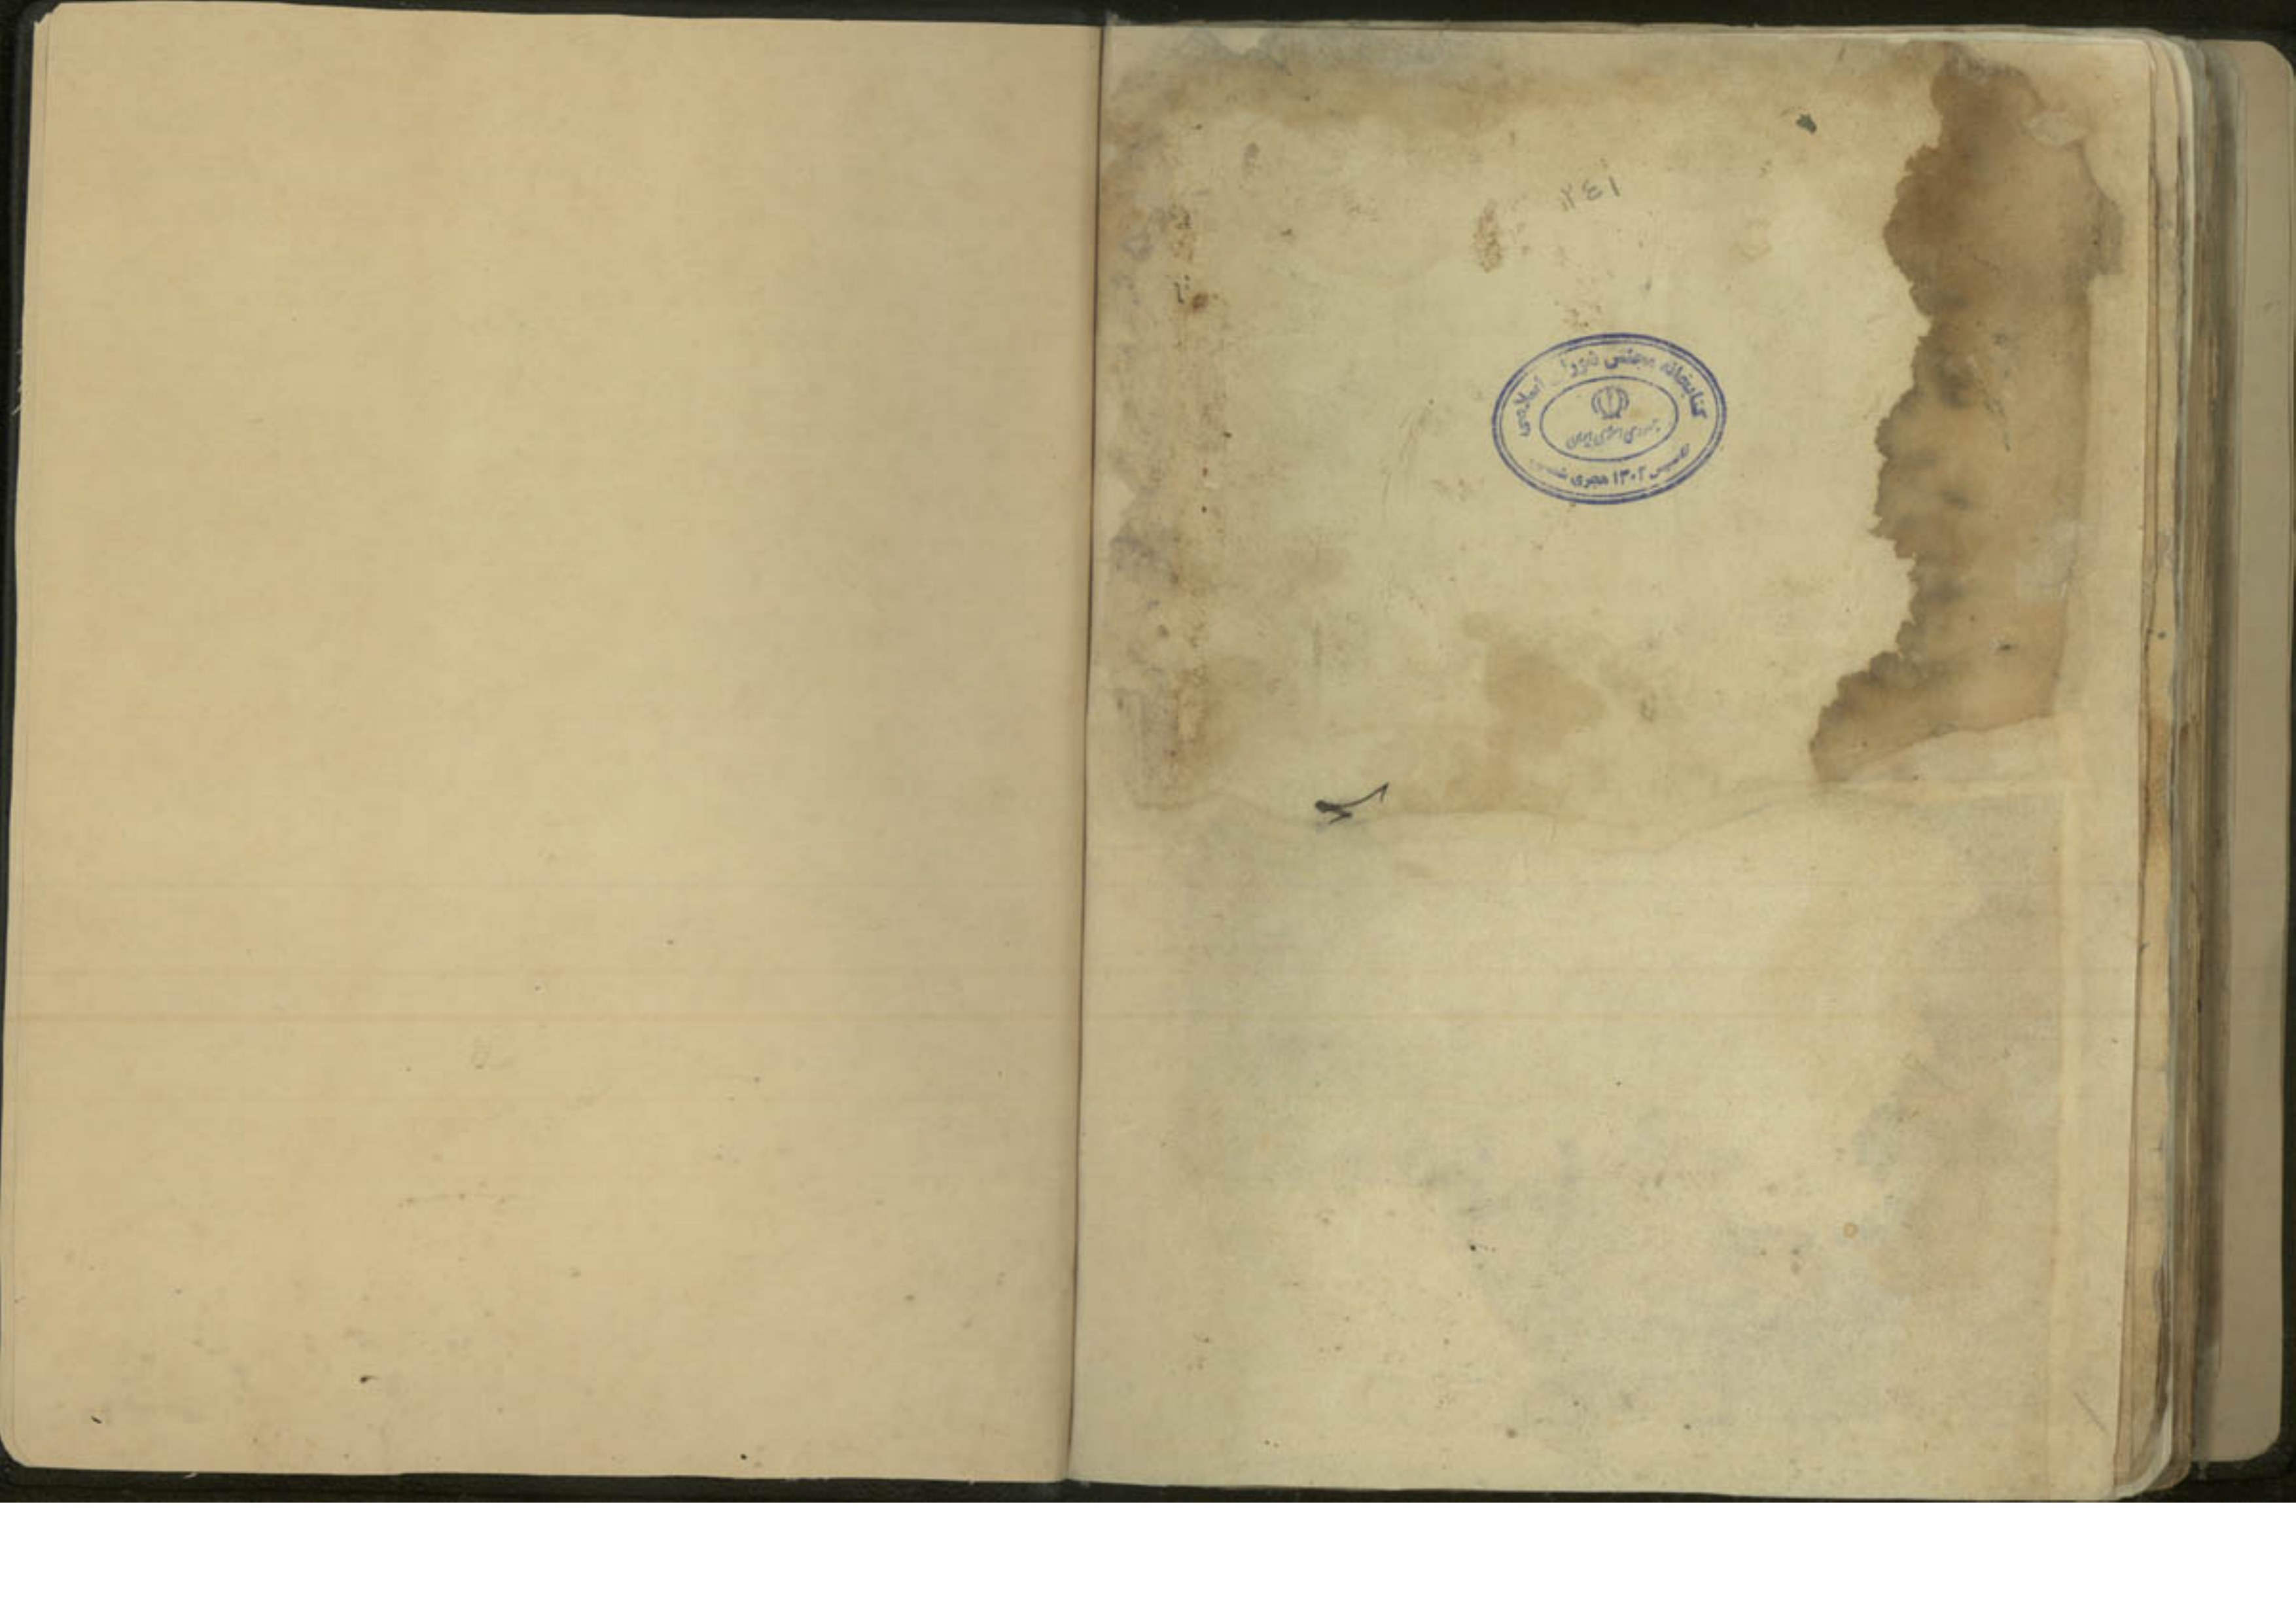 ٢٤١
کتابخانه مجلس شورای اسلامی
جمهوری اسلامی ایران
تاسیس ١٣٠٢ هجری شمسی